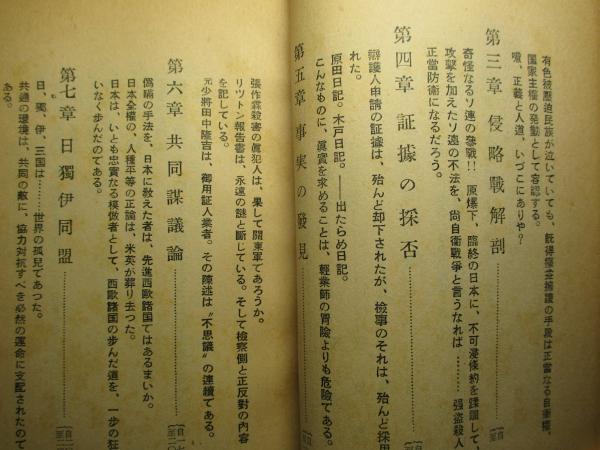 有色被壓迫民族が泣いていても、既得權益擁護の手段は正當なる自衞權、
國家主權の発動として容認する。
噫、正義と人道、いづこにありや？
第三章 侵略戰解剖
奇怪なるソ連の參戰!! 原爆下、臨終の日本に、不可浸條約を蹂躙して、
攻擊を加えたソ連の不法を、尚自衞戰爭と言うなれば………強盗殺人
正當防衞になるだろう。
第四章 証據の採否
辯護人申請の証據は、殆んど却下されたが、檢事のそれは、殆んど採用
れた。
原田日記。木戸日記。――出たらめ日記。
こんなものに、眞實を求めることは、輕業師の冒險よりも危險である。
第五章 事実の發見
張作霖殺害の眞犯人は、果して關東軍であろうか。
リツトン報告書は、永遠の謎と斷じている。そして檢察側と正反對の内容
を記している。
元少將田中隆吉は、御用証人業者。その陳述は〝不思議〟の連續である。
第六章 共同謀議論
僞瞞の手法を、日本に教えた者は、先進西歐諸国ではあるまいか。
日本全權の、人種平等の正論は、米英が葬り去つた。
日本は、いとも忠實なる模倣者として、西歐諸国の步んだ道を、一步の狂
いなく步んだのである。
第七章 日獨伊同盟
日、獨、伊、三国は……世界の孤兒であつた。
共通の環境は、共同の敵に、協力対抗すべき必然の運命に支配されたので
ある。